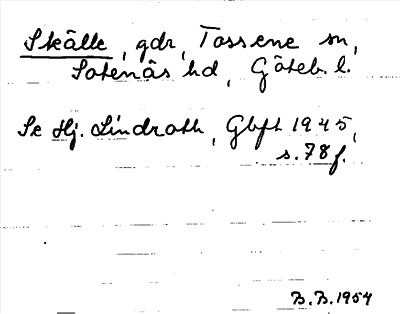 Skälle, gdr, Tossene sn,
Sotenäs hd, Göteb. l.
Se Hj. Lindroth, Gbft 1945,
s. 78 f.
B.B. 1954